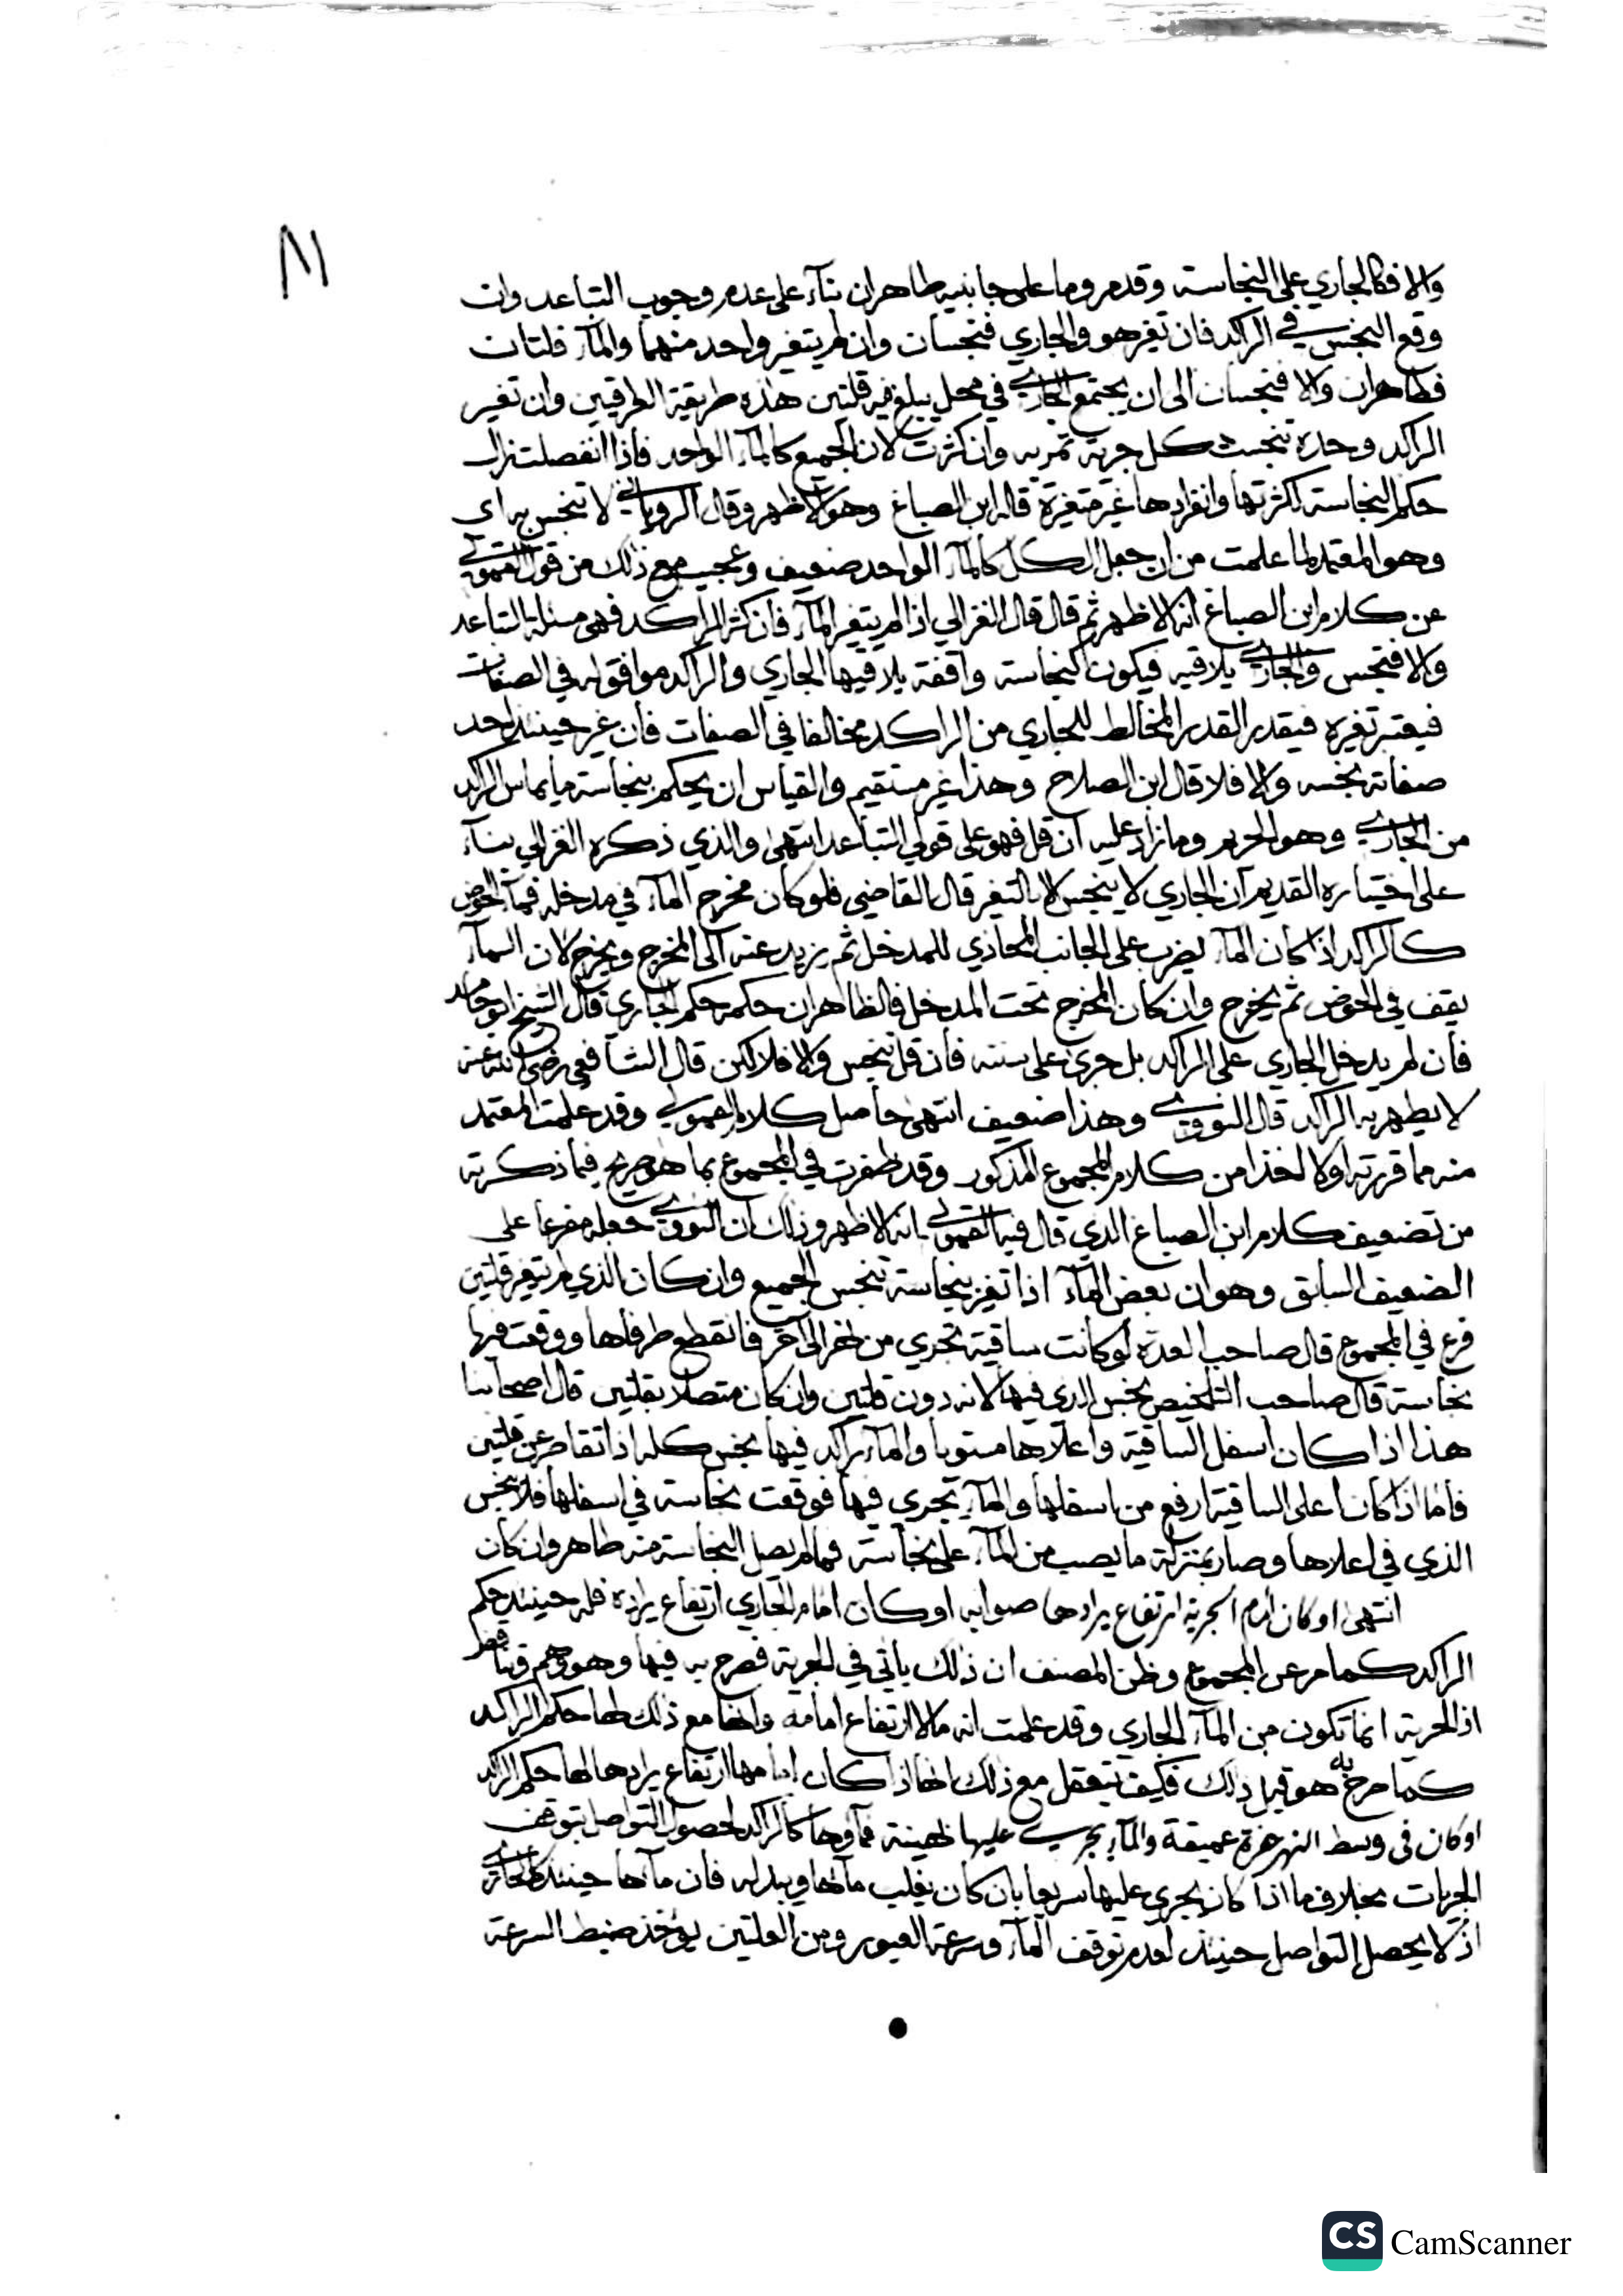 والا فكالجاري على النجاسة وقد مر وما على جانبيه طاهران بناء على عدم وجوب التباعد وان
وقع النجس في الراكد فان تغير هو والجاري فنجسان وان لم يتغير واحد منهما والماء قلتان
فطاهران والا فنجسان الى ان يجتمع الجاري في محل يبلغ فيه قلتين هذه طريقة العراقيين وان تغير
الراكد وحده تنجست كل جرية تمر به وان كثرت لان الجميع كالماء الواحد فاذا انفصلت زال
حكم النجاسة لكثرتها وانفرادها غير متغيرة قاله ابن الصباغ وهو الاظهر وقال الروياني لا تنجس به اي
وهو المعتمد لما علمت من ان جعل الكل كالماء الواحد ضعيف وعجيب مع ذلك من قول القمولي
عن كلام ابن الصباغ انه الاظهر ثم قال قال الغزالي اذا لم يتغير الماء فان كثر الراكد فهي مسئلة التباعد
والا فنجس والجاري يلاقيه فيكون كنجاسة واقفة يلاقيها الجاري والراكد موافق له في الصفات
فيعتبر تغيره فيقدر القدر المخالط للجاري من الراكد مخالفا في الصفات فان غير حينئذ احد
صفاته نجسه والا فلا قال ابن الصلاح وهذا غير مستقيم والقياس ان يحكم بنجاسة ما يماس الراكد
من الجاري وهو الحريم وما زاد عليه ان قل فهو على قولي التباعد انتهى والذي ذكره الغزالي بناء
على اختياره القديم ان الجاري لا ينجس الا بالتغير قال القاضي فلو كان مخرج الماء في مدخله فماء الحوض
كالراكد اذا كان الماء يضرب على الجانب المحاذي للمدخل ثم يرتد عنه الى المخرج ويخرج لان الماء
يقف في الحوض ثم يخرج وان كان المخرج تحت المدخل فالظاهر ان حكمه حكم الجاري قال الشيخ ابو حامد
فان لم يدخل الجاري على الراكد بل جرى على سننه فان قل ينجس والا فلا لكن قال الشافعي رضي الله عنه
لا يطهر به الراكد قال النووي وهذا ضعيف انتهى حاصل كلام القمولي وقد علمت المعتمد
منه مما قررته اولا اخذا من كلام المجموع المذكور وقد ظفرت في المجموع بما هو صريح فيما ذكرته
من تضعيف كلام ابن الصباغ الذي قال فيه القمولي انه الاظهر وذلك ان النووي جعله مفرعا على
الضعيف السابق وهو ان بعض الماء اذا تغير بنجاسة تنجس الجميع وان كان الذي لم يتغير قلتين
فرع في المجموع قال صاحب العدة لو كانت ساقية تجري من نهر الى اخر فانقطع طرفاها ووقعت فيها
نجاسة قال صاحب التلخيص نجس الذي فيها لانه دون قلتين وان كان متصلا بقلتين قال اصحابنا
هذا اذا كان اسفل الساقية واعلاها مستويا والماء راكد فيها نجس كله اذا تقاصر عن قلتين
فاما اذا كان اعلى الساقية ارفع من اسفلها والماء يجري فيها فوقعت نجاسة في اسفلها فلا ينجس
الذي في اعلاها وصار بمنزلة ما يصب من الماء على نجاسة فما لم يصل النجاسة منه طاهر وان كان
انتهى او كان امام الجرية ارتفاع يرادها صوابه او كان امام الجاري ارتفاع يراده فله حينئذ حكم
الراكد كما مر عن المجموع وظن المصنف ان ذلك ياتي في الجرية فصرح به فيها وهو وهم وتناقض
اذ الجرية انما تكون من الماء الجاري وقد علمت انه ما لا ارتفاع امامه وانها مع ذلك لها حكم الراكد
كما صرح به هو قبل ذلك فكيف يتعقل مع ذلك انها اذا كان امامها ارتفاع يرادها لها حكم الراكد
او كان في وسط النهر حفرة عميقة والماء يجري عليها هينة فماؤها كالراكد لحصول التواصل بتوقف
الجريات بخلاف ما اذا كان يجري عليها سريعا بان كان يغلب ماءها ويبدله فان ماءها حينئذ كالجاري
اذ لا يحصل التواصل حينئذ لعدم توقف الماء وسرعة العبور ومن العلتين يؤخذ ضبط السرعة
CS CamScanner